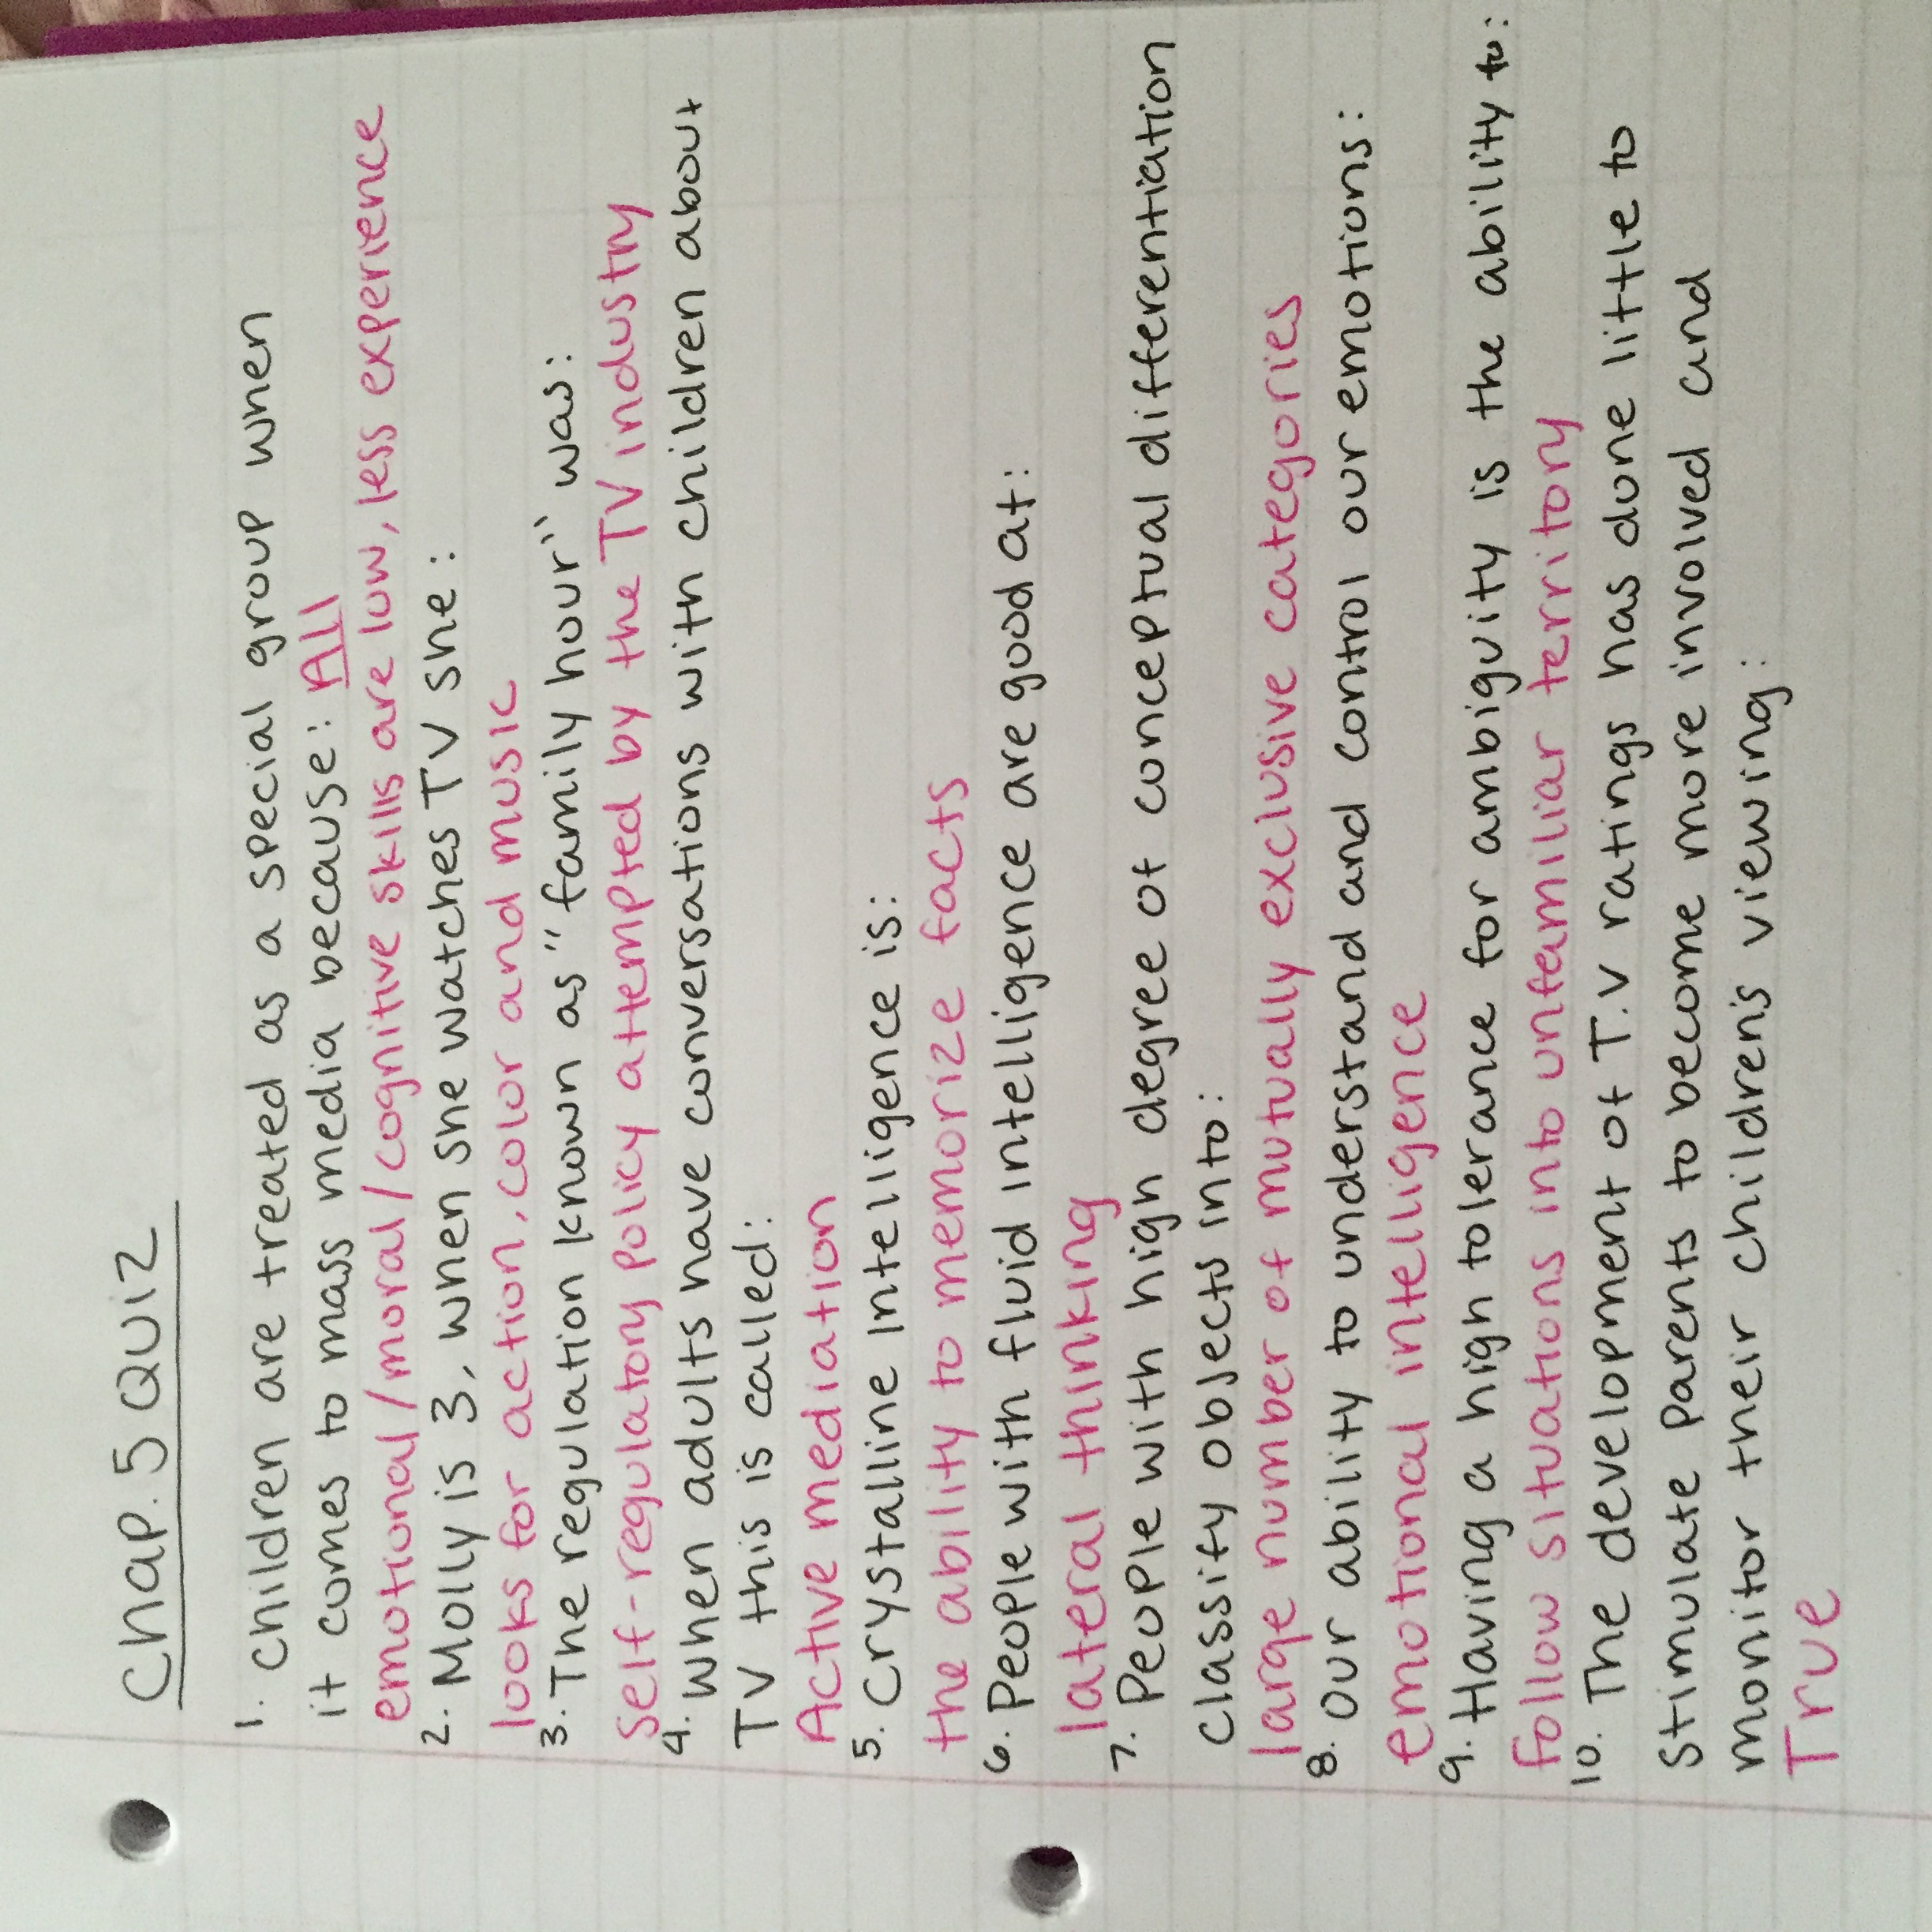 Chap. 5 Quiz
1. Children are treated as a special group when
it comes to mass media because: All
emotional/moral/cognitive skills are low, less experience
2. Molly is 3, when she watches TV she:
looks for action, color and music
3. The regulation known as "family hour" was:
self-regulatory policy attempted by the TV industry
4. When adults have conversations with children about
TV this is called:
Active mediation
5. Crystalline Intelligence is:
the ability to memorize facts
6. People with fluid intelligence are good at:
lateral thinking
7. People with high degree of conceptual differentiation
classify objects into:
large number of mutually exclusive categories
8. Our ability to understand and control our emotions:
emotional intelligence
9. Having a high tolerance for ambiguity is the ability to:
follow situations into unfamiliar territory
10. The development of T.V ratings has done little to
stimulate parents to become more involved and
monitor their children's viewing:
True